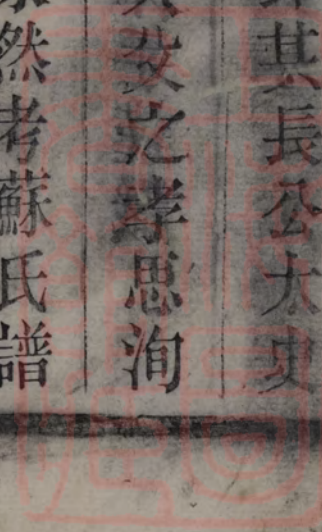 其長公太史
父之孝思洵
然考蘇氏譜